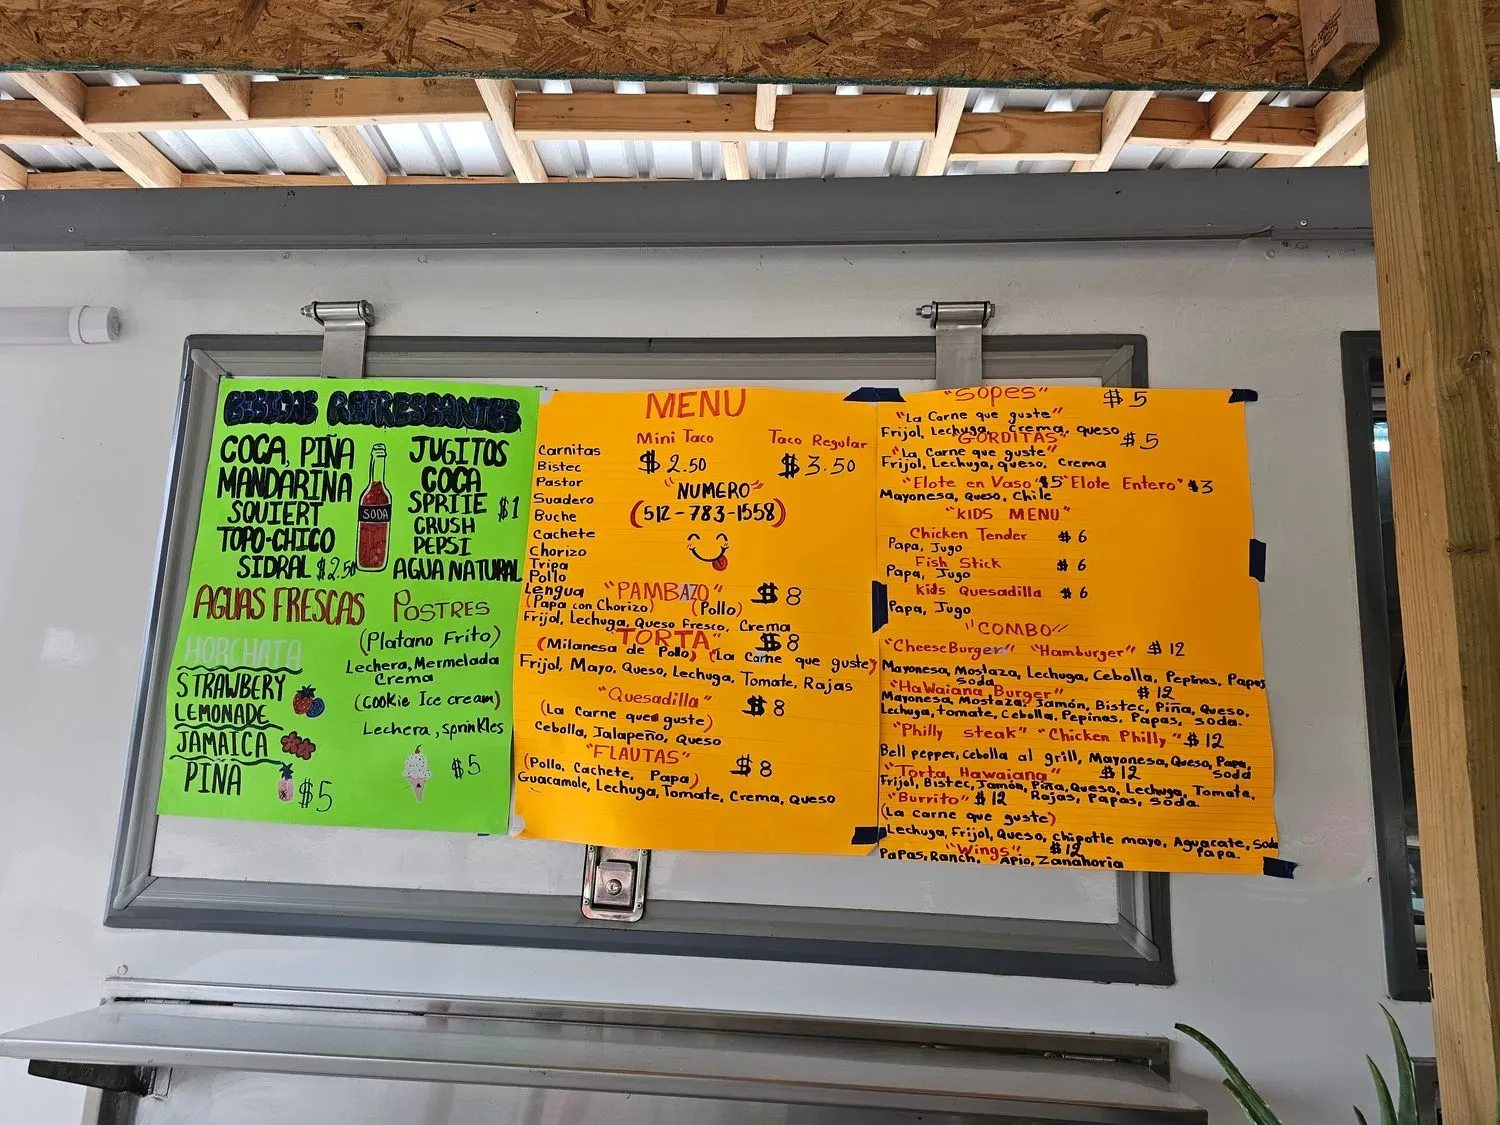 BEBIDAS REFRESCANTES
COCA, PIÑA
MANDARINA
SQUIERT
TOPO-CHICO
SIDRAL $2.50
SODA
JUGITOS
COCA
SPRITE $1
CRUSH
PEPSI
AGUA NATURAL
AGUAS FRESCAS
HORCHATA
STRAWBERY
LEMONADE
JAMAICA
PIÑA
$5
POSTRES
(Platano Frito)
Lechera, Mermelada
Crema
(cookie Ice cream)
Lechera, sprinkles
$5
MENU
Mini Taco Taco Regular
$2.50 $3.50
Carnitas
Bistec
Pastor
Suadero
Buche
Cachete
Chorizo
Tripa
Pollo
Lengua
"NUMERO"
(512-783-1558)
"PAMBAZO" $8
(Papa con Chorizo) (Pollo)
Frijol, Lechuga, Queso fresco, Crema
"TORTA" $8
(Milanesa de Pollo) (La Carne que guste)
Frijol, Mayo, Queso, Lechuga, Tomate, Rajas
"Quesadilla" $8
(La Carne que guste)
Cebolla, Jalapeño, Queso
"FLAUTAS" $8
(Pollo, Cachete, Papa)
Guacamole, Lechuga, Tomate, Crema, Queso
"Sopes" $5
"La Carne que guste"
Frijol, Lechuga, Crema, queso
GORDITAS" $5
"La Carne que guste"
Frijol, Lechuga, queso, Crema
"Elote en Vaso" $5 "Elote Entero" $3
Mayonesa, Queso, Chile
"KIDS MENU"
Chicken Tender $6
Papa, Jugo
Fish Stick $6
Papa, Jugo
Kids Quesadilla $6
Papa, Jugo
"COMBO"
"CheeseBurger" "Hamburger" $12
Mayonesa, Mostaza, Lechuga, Cebolla, Pepinos, Papas
soda
"HaWaiana Burger" $12
Mayonesa, Mostaza, Jamón, Bistec, Piña, Queso,
Lechuga, tomate, Cebolla, Pepinos, Papas, soda.
"Philly steak" "Chicken Philly" $12
Bell pepper, Cebolla al grill, Mayonesa, Queso, Papa,
soda
"Torta Hawaiana" $12
Frijol, Bistec, Jamón, Piña, Queso, Lechuga, Tomate,
Rajas, Papas, soda.
"Burrito" $12
(La carne que guste)
Lechuga, Frijol, Queso, chipotle mayo, Aguacate, Soda
Papa.
"Wings" $12
Papas, Ranch, Apio, Zanahoria